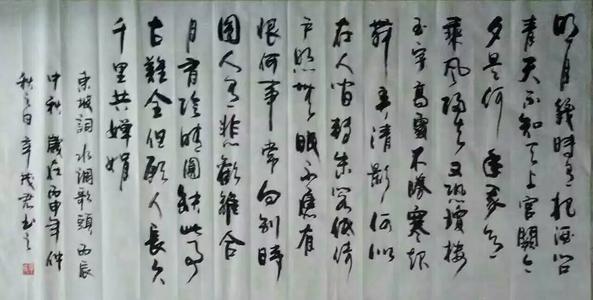 明月幾時有把酒问
青天不知天上宫闕今
夕是何年我欲
乘風歸去又恐瓊樓
玉宇高處不勝寒起
舞弄清影何似
在人间轉朱閣低綺
户照無眠不應有
恨何事常向别時
圆人有悲歡離合
月有陰晴圓缺此事
古難全但願人長久
千里共嬋娟
東坡詞水調歌頭丙辰
中秋 歲在丙申年仲
秋之日辛茂君书之